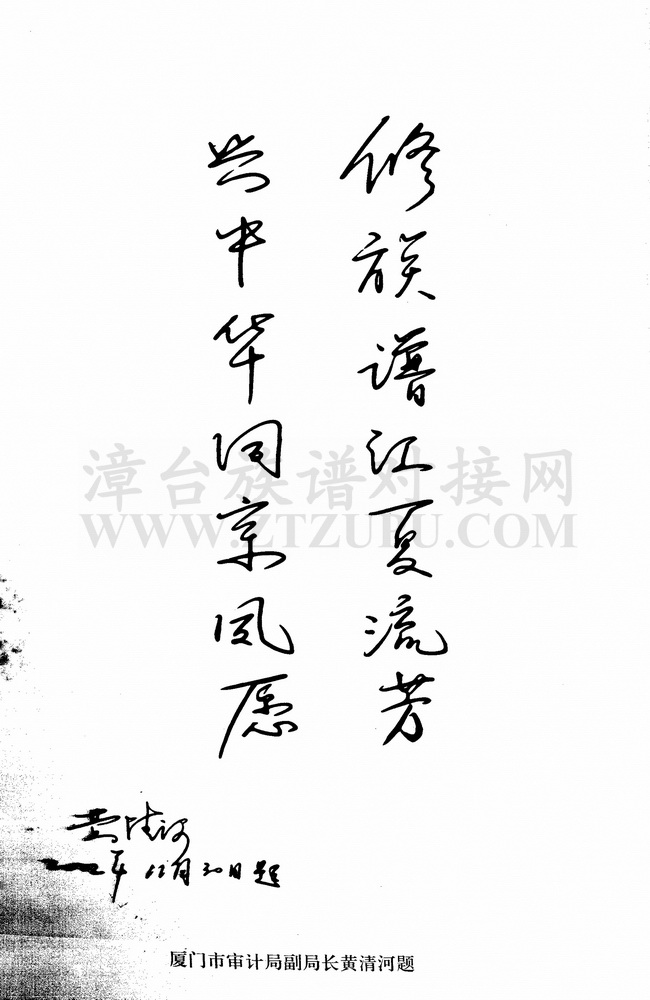 修族谱江夏流芳
兴中华同宗凤愿
黄清河
年12月30日题
厦门市审计局副局长黄清河题
漳台族谱对接网
WWW.ZTZUPU.COM